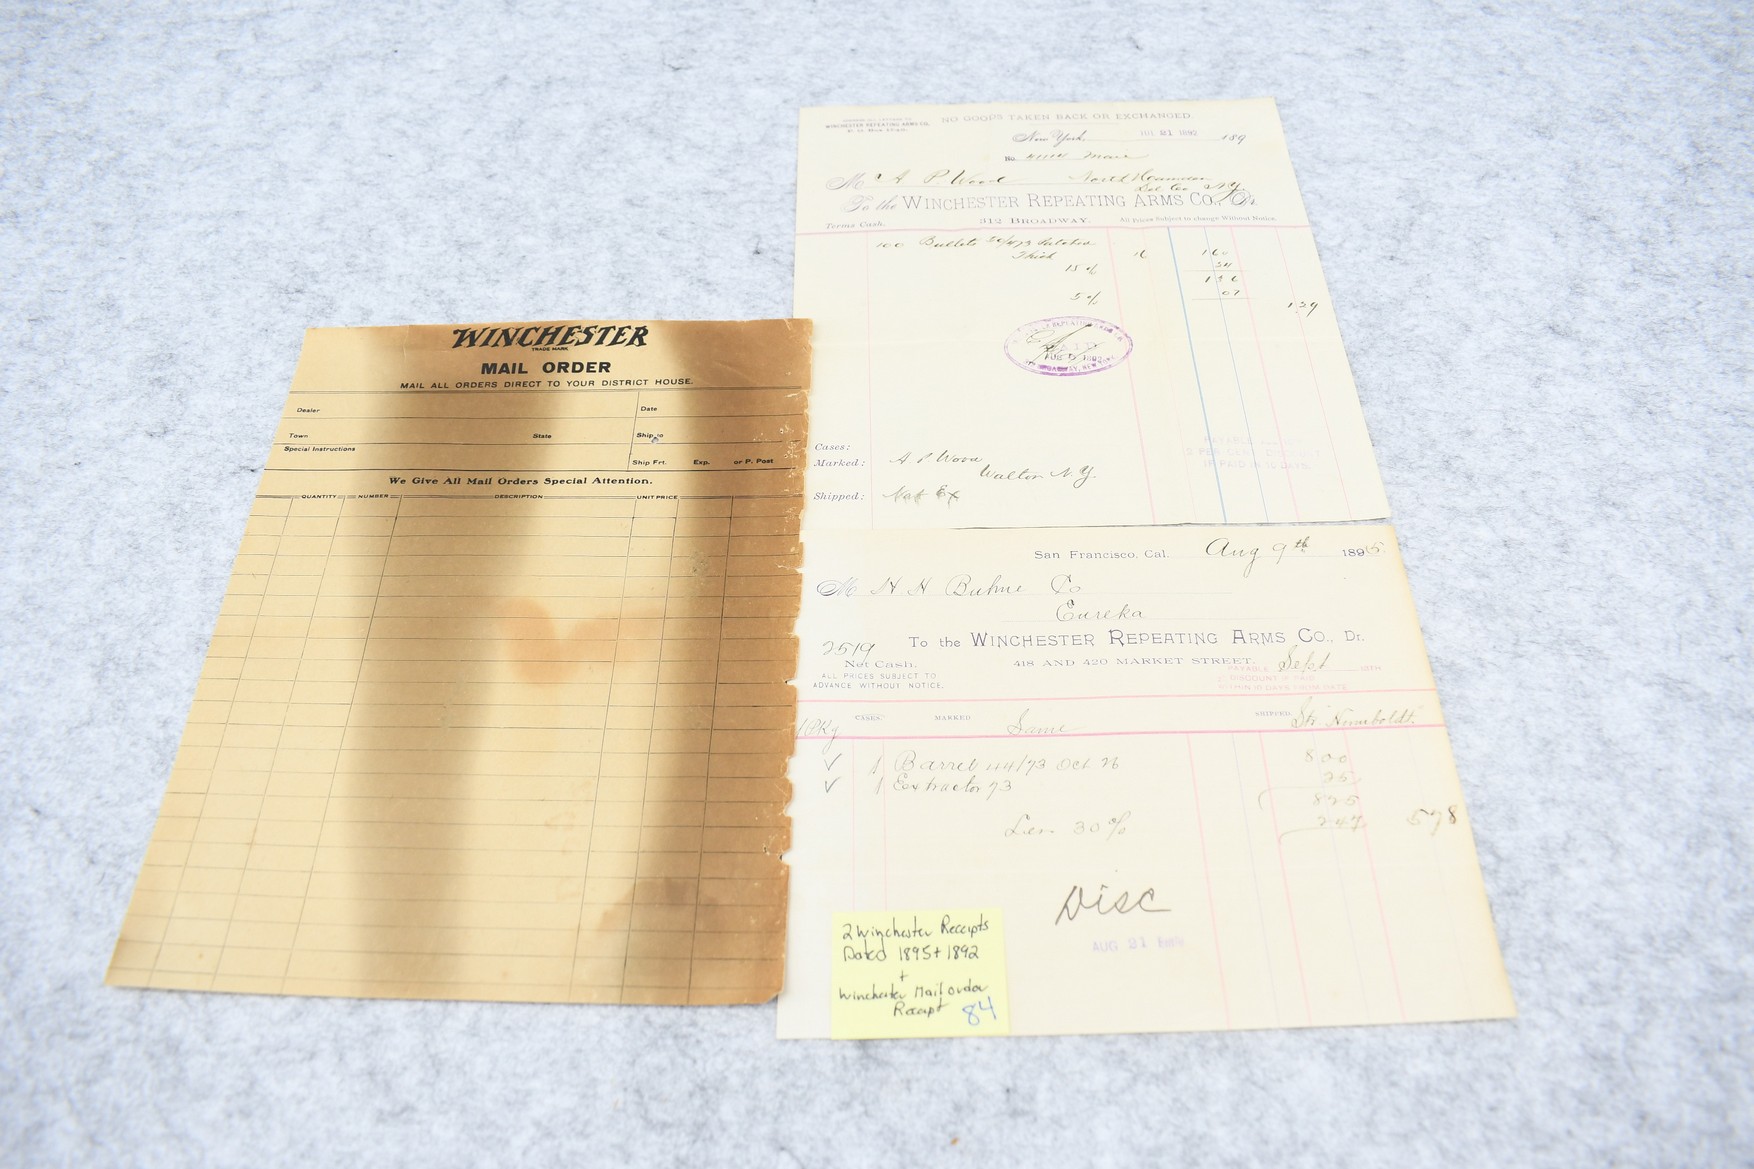 WINCHESTER
TRADE MARK
MAIL ORDER
MAIL ALL ORDERS DIRECT TO YOUR DISTRICT HOUSE.
Dealer
Date
Town
State
Ship to
Special Instructions
Ship Frt. Exp. or P. Post
We Give All Mail Orders Special Attention.
QUANTITY NUMBER DESCRIPTION UNIT PRICE
WINCHESTER REPEATING ARMS CO.
NO GOODS TAKEN BACK OR EXCHANGED
New York, 21 1892 189
No
M A. P. Wood
To the WINCHESTER REPEATING ARMS CO., Dr.
312 BROADWAY.
Terms Cash.
All Prices Subject to change Without Notice.
100 Bullets
Thick
15 %
5 %
1 29
Cases:
Marked: A P Wood
Walton N.Y.
Shipped: Nat Ex
San Francisco, Cal. Aug 9th 1895
M H H Buhne Co
Eureka
2519
To the WINCHESTER REPEATING ARMS CO., Dr.
Net Cash.
418 AND 420 MARKET STREET.
ALL PRICES SUBJECT TO
ADVANCE WITHOUT NOTICE.
PAYABLE Sept
DISCOUNT IF PAID
WITHIN 10 DAYS FROM DATE
1 Pkg CASES MARKED Same SHIPPED Str Humboldt
1 Barrel 44/73 Oct 26 8 00
1 Extractor 73 25
8 25
Less 30% 2 47 5 78
Disc
AUG 21
2 Winchester Receipts
Dated 1895 + 1892
+
Winchester Mail Order
Receipt 84